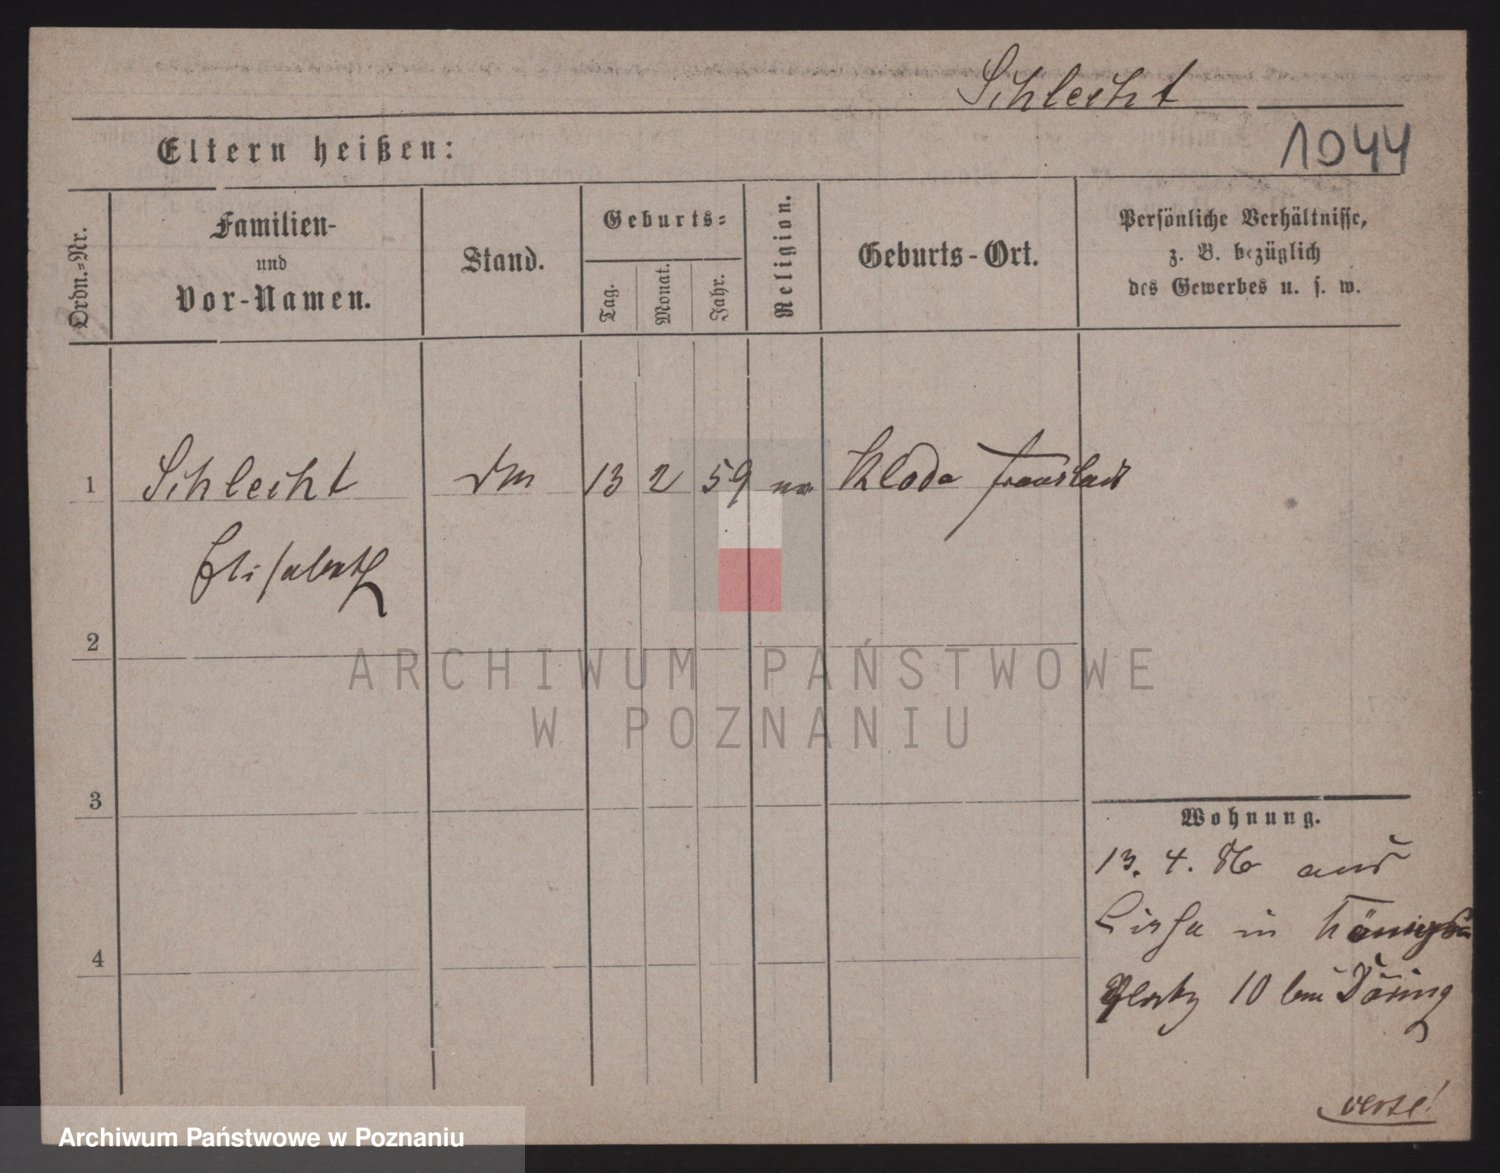 Schlecht
1044
Eltern heißen:
Ordn.-Nr.
Familien-
und
Vor-Namen.
Stand.
Geburts-
Tag.
Monat.
Jahr.
Religion.
Geburts-Ort.
Persönliche Verhältnisse,
z. B. bezüglich
des Gewerbes u. s. w.
1 Schlecht 13 2 59 Kloda Fraustadt
Elisabeth
2
ARCHIWUM PAŃSTWOWE
W POZNANIU
3
Wohnung.
13. 4. 86 aus
Lissa in
4
Platz 10 bei Döring
verte!
Archiwum Państwowe w Poznaniu